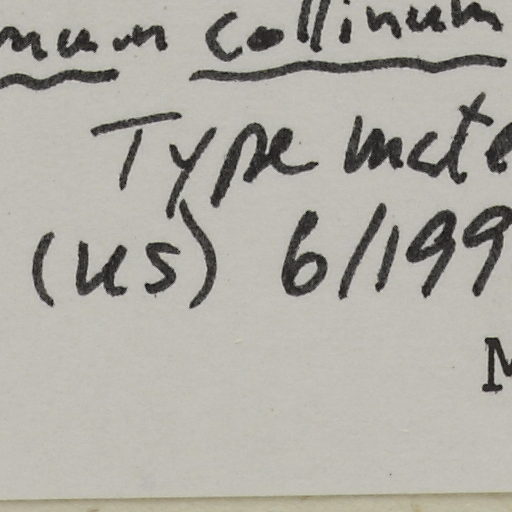 collinum
Type mate
(US) 6/199
M